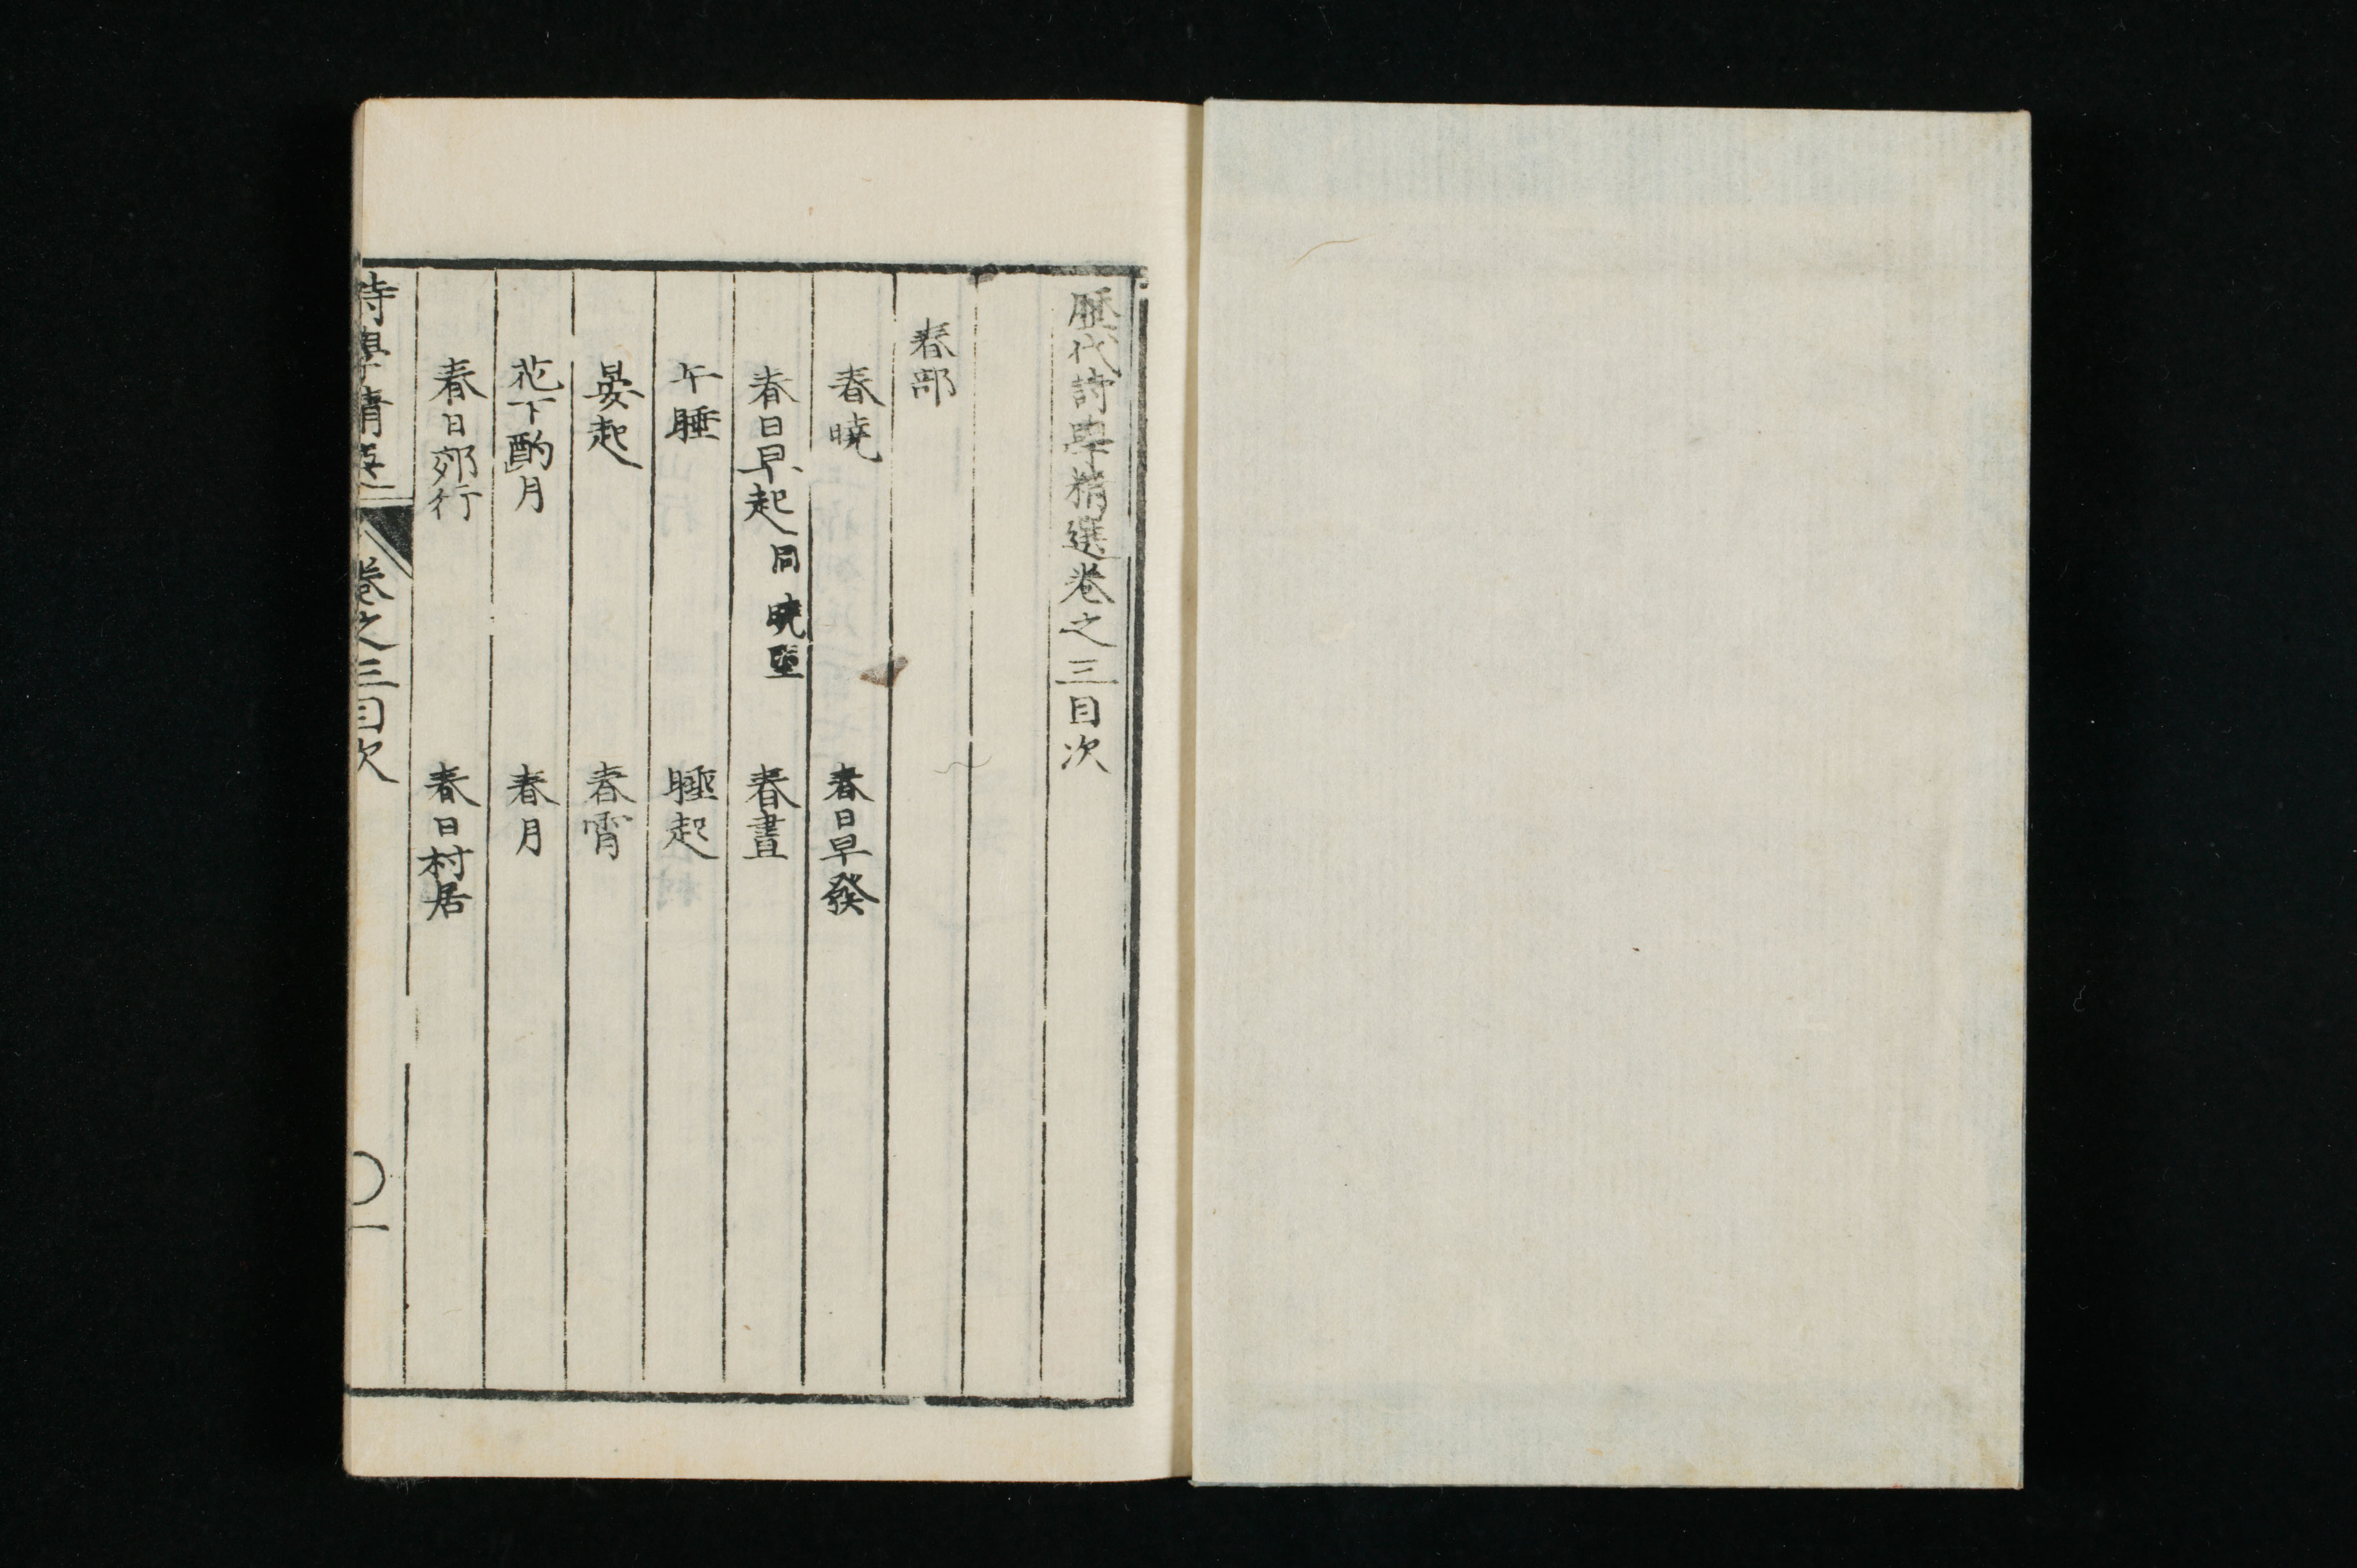 歷代詩學精選卷之三目次
春部
春曉 春日早發
春日早起 同 曉望 春晝
午睡 睡起
晏起 春宵
花下酌月 春月
春日郊行 春日村居
詩學精選 卷之三目次 〇一